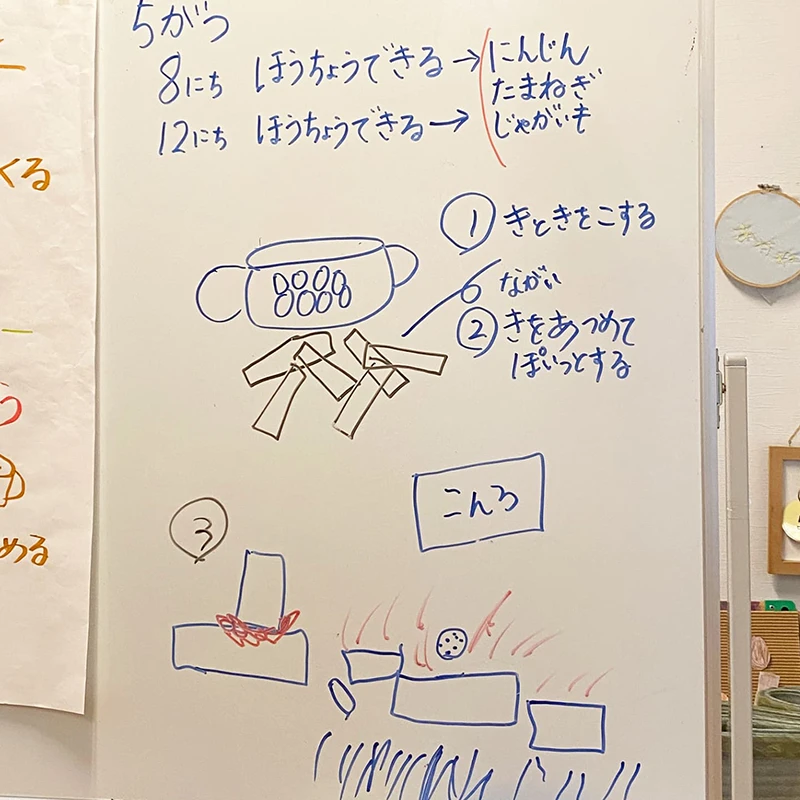 5がつ
8にち ほうちょうできる→にんじん
たまねぎ
12にち ほうちょうできる→じゃがいも
① きときをこする
ながい
② きをあつめて
ぽいっとする
こんろ
③
くる
める